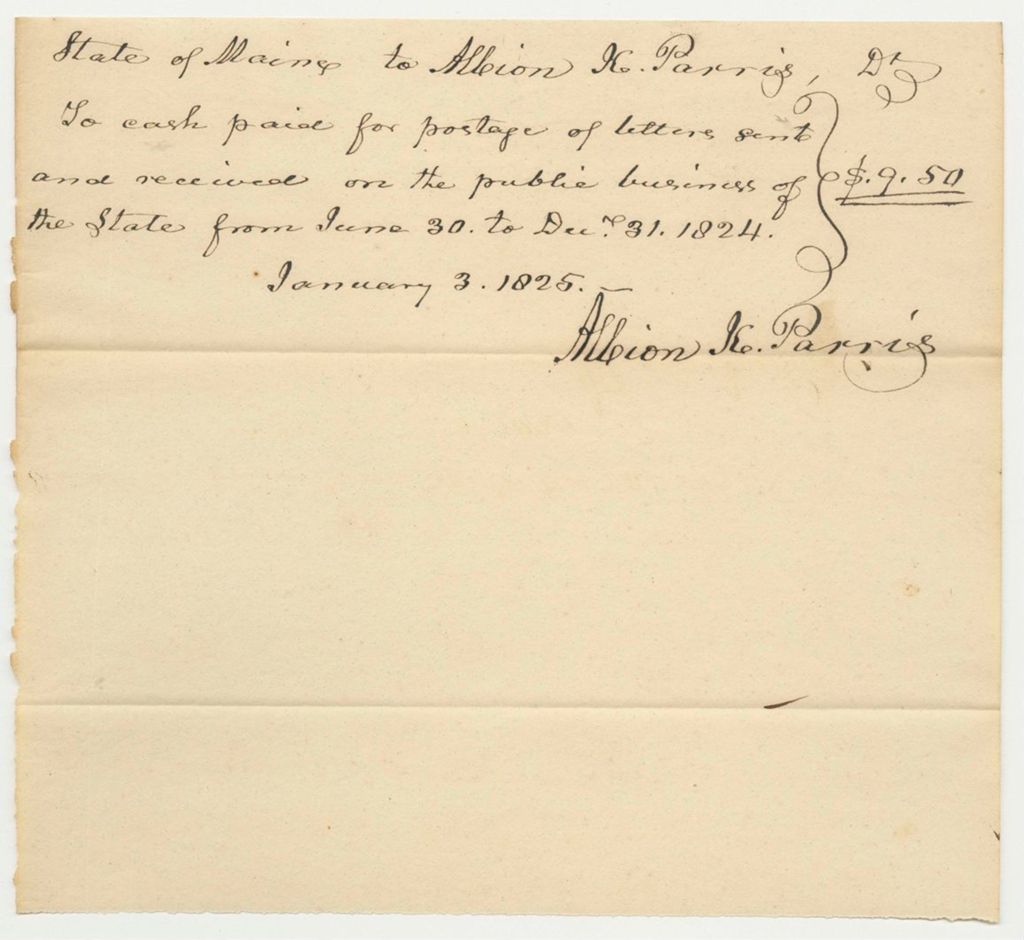 State of Maine to Albion K. Parris, Dr
To cash paid for postage of letters sent
and received on the public business of $.9.50
the State from June 30. to Decr. 31. 1824.
January 3. 1825. —
Albion K. Parris